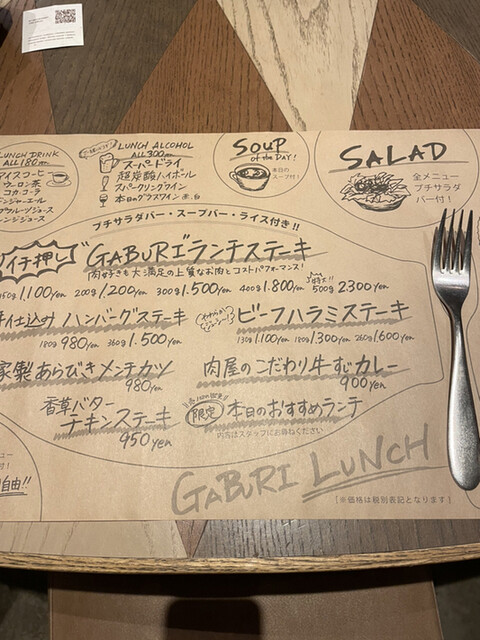 LUNCH DRINK
ALL 180yen
アイスコーヒー
ウーロン茶
コカ・コーラ
ジンジャーエール
オレンジジュース
LUNCH ALCOHOL
ALL 300yen
スーパードライ
超炭酸ハイボール
スパークリングワイン
本日のグラスワイン 赤・白
SOUP
of the DAY!
本日の
スープ付!
SALAD
全メニュー
プチサラダ
バー付!
プチサラダバー・スープバー・ライス付き!!
イチ押し GABURI ランチステーキ
肉好きも大満足の上質なお肉とコストパフォーマンス!
150g 1,100yen 200g 1,200yen 300g 1,500yen 400g 1,800yen 500g 2300yen
仕込み ハンバーグステーキ
180g 980yen 360g 1,500yen
ビーフハラミステーキ
130g 1,100yen 180g 1,300yen 260g 1,600yen
家製あらびきメンチカツ
980yen
肉屋のこだわり牛すじカレー
900yen
香草バター
チキンステーキ
950yen
限定 本日のおすすめランチ
内容はスタッフにお尋ねください
自由!!
GABURI LUNCH
[※価格は税別表記となります]